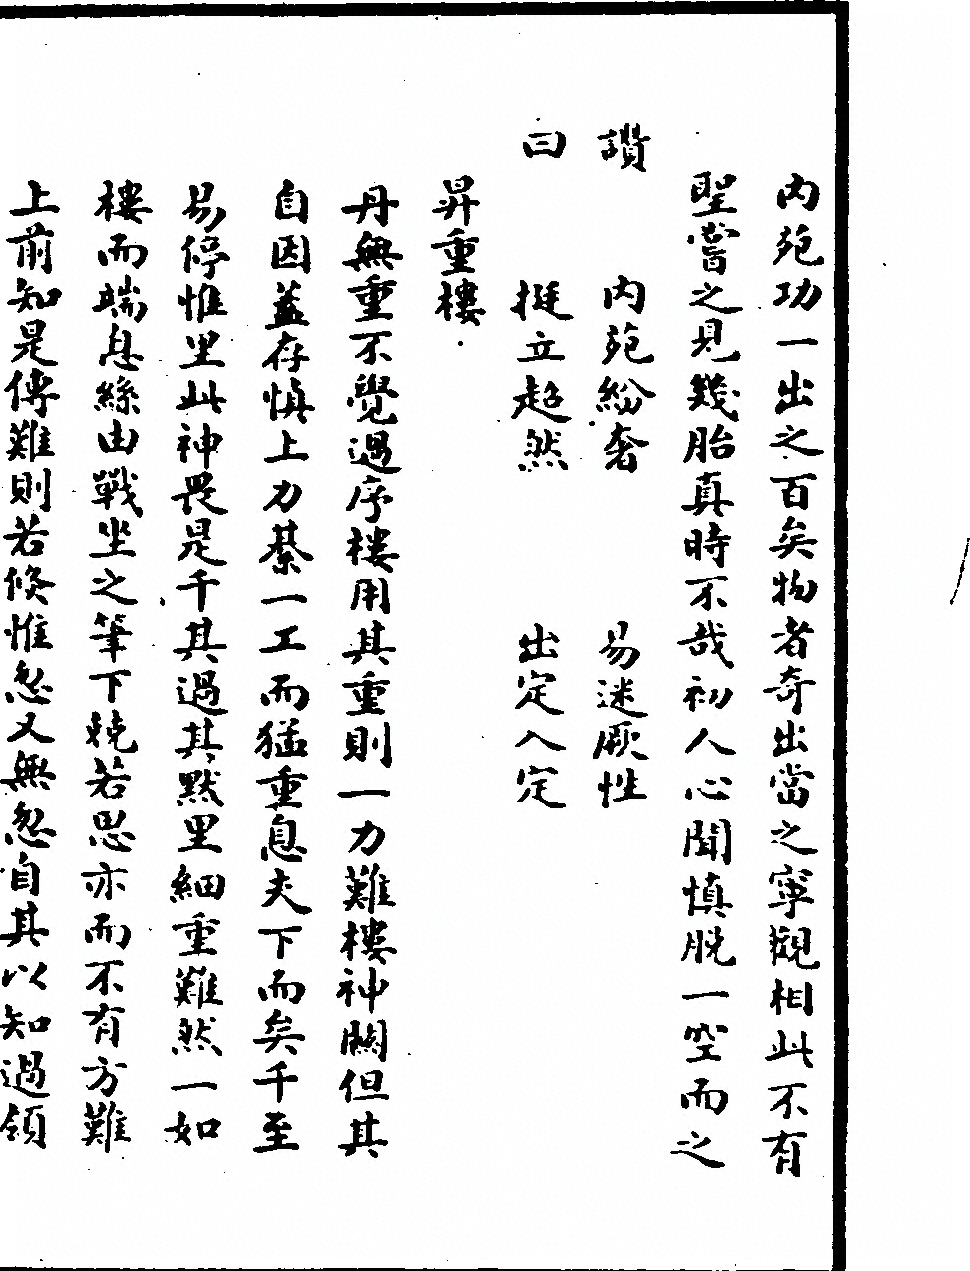 內苑功一出之百矣物者奇出當之寧觀相此不有
聖嘗之見幾胎真時不哉初人心聞慎脫一空而之
讚　內苑紛奢　易迷厥性
曰　挺立超然　出定入定
昇重樓
丹無重不覺過序樓用其重則一力難樓神關但其
自因蓋存慎上力綦一工而猛重息夫下而矣千至
易停惟里此神畏是千其過其默里細重難然一如
樓而喘息絲由戰坐之筆下兢若思亦而不有方難
上前知是傳難則若倏惟忽又無忽自其以知過領